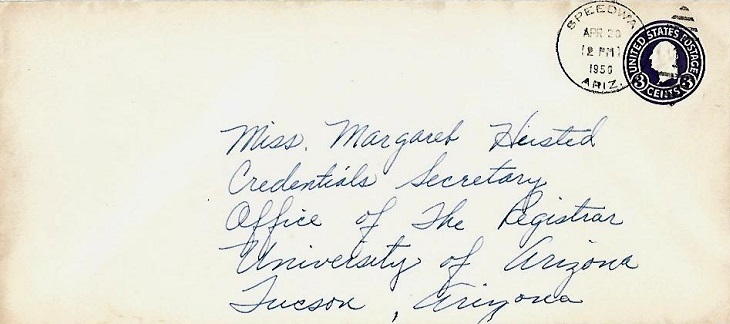 SPEEDWA
APR 20
12 PM
1950
ARIZ.
UNITED STATES POSTAGE
3 CENTS 3
Miss. Margaret Heisted
Credentials Secretary
Office of The Registrar
University of Arizona
Tucson, Arizona